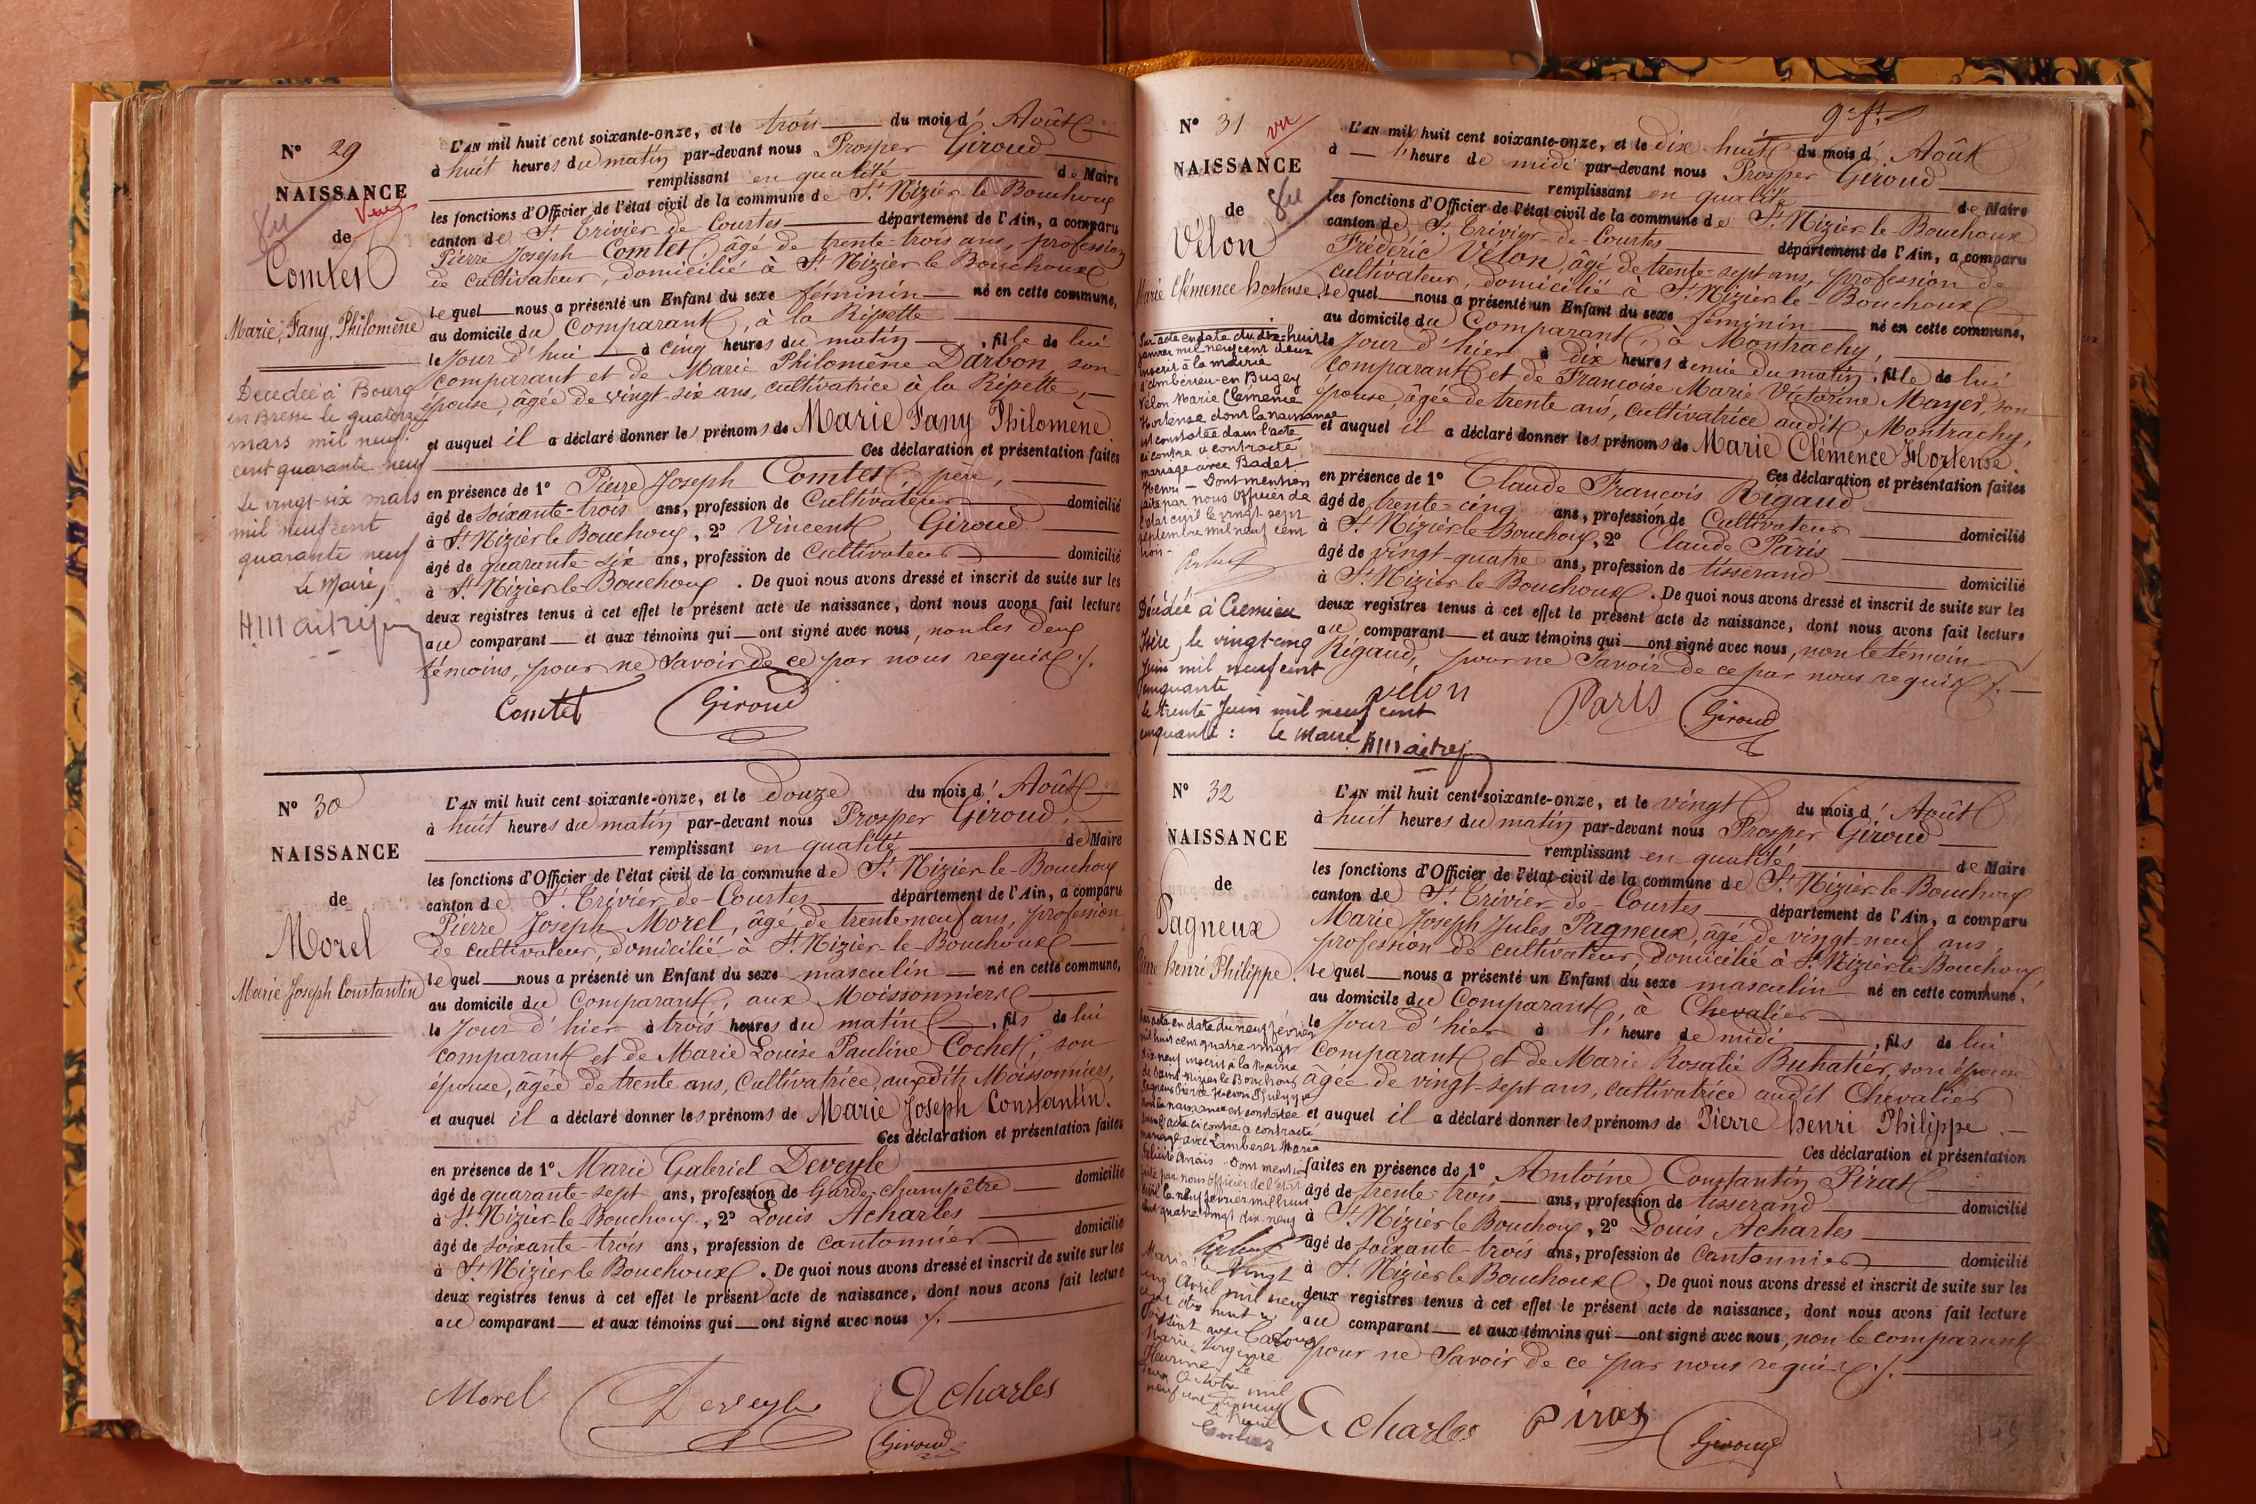 N° 29
NAISSANCE
Vu
de
Comtet
Marie, Fany, Philomène
Décédée à Bourg
en Bresse le quatorze
mars mil neuf
cent quarante neuf
Le vingt-six mars
mil neuf cent
quarante neuf
Le Maire,
L'AN mil huit cent soixante-onze, et le trois du mois d'Août
à huit heures du matin par-devant nous Prosper Giroud
remplissant en qualité de Maire
les fonctions d'Officier de l'état civil de la commune de St Nizier le Bouchoux
canton de St Trivier de Courtes département de l'Ain, a comparu
Pierre Joseph Comtet, âgé de trente-trois ans, profession
de cultivateur, domicilié à St Nizier le Bouchoux
le quel nous a présenté un Enfant du sexe féminin né en cette commune,
au domicile du Comparant, à la Ripette
le Jour d'hui à cinq heures du matin, fille de lui
comparant et de Marie Philomène Darbon, son
épouse, âgée de vingt-six ans, cultivatrice à la Ripette,
et auquel il a déclaré donner les prénoms de Marie Fany Philomène
Ces déclaration et présentation faites
en présence de 1° Pierre Joseph Comtet, père,
âgé de soixante-trois ans, profession de Cultivateur domicilié
à St Nizier le Bouchoux, 2° Vincent Giroud
âgé de quarante six ans, profession de Cultivateur domicilié
à St Nizier le Bouchoux. De quoi nous avons dressé et inscrit de suite sur les
deux registres tenus à cet effet le présent acte de naissance, dont nous avons fait lecture
au comparant et aux témoins qui ont signé avec nous, non les deux
témoins, pour ne Savoir de ce par nous requis /.
Comtet Giroud
N° 30
NAISSANCE
de
Morel
Marie Joseph Constantin
L'AN mil huit cent soixante-onze, et le Douze du mois d'Août
à huit heures du matin par-devant nous Prosper Giroud,
remplissant en qualité de Maire
les fonctions d'Officier de l'état civil de la commune de St Nizier-le-Bouchoux
canton de St Trivier-de-Courtes département de l'Ain, a comparu
Pierre Joseph Morel, âgé de trente neuf ans, profession
de cultivateur, domicilié à St Nizier-le-Bouchoux
le quel nous a présenté un Enfant du sexe masculin né en cette commune,
au domicile du Comparant, aux Moissonniers
le Jour d'hier à trois heures du matin, fils de lui
comparant et de Marie Louise Pauline Cochet, son
épouse, âgée de trente ans, Cultivatrice, auxdits Moissonniers,
et auquel il a déclaré donner les prénoms de Marie Joseph Constantin.
Ces déclaration et présentation faites
en présence de 1° Marie Gabriel Deveyle
âgé de quarante-sept ans, profession de Garde champêtre domicilié
à St Nizier-le Bouchoux, 2° Louis Acharles
âgé de soixante-trois ans, profession de cantonnier domicilié
à St Nizier le Bouchoux. De quoi nous avons dressé et inscrit de suite sur les
deux registres tenus à cet effet le présent acte de naissance, dont nous avons fait lecture
au comparant et aux témoins qui ont signé avec nous /.
Morel Deveyle Acharles
Giroud
9e ft.
N° 31
vu
NAISSANCE
de
Vélon
Marie Clémence hortense
Par acte en date du dix-huit
janvier mil neuf cent deux
inscrit à la mairie
d'Ambérieu-en Bugey
Vélon Marie Clémence
Hortense dont la naissance
est constatée dans l'acte
ci contre a contracté
mariage avec Badet
Henri - Dont mention
faite par nous officier de
l'état civil le vingt sept
septembre mil neuf cent
Décédée à Crémieu
Isère, le vingt-cinq
Juin mil neuf cent
cinquante
le trente Juin mil neuf cent
cinquante : Le Maire
L'AN mil huit cent soixante-onze, et le dix huit du mois d'Août
à l'heure de midi par-devant nous Prosper Giroud
remplissant en qualité de Maire
les fonctions d'Officier de l'état civil de la commune de St Nizier le Bouchoux
canton de St Trivier-de-Courtes département de l'Ain, a comparu
Fréderic Vélon, âgé de trente-sept ans, profession de
cultivateur, domicilié à St Nizier le-Bouchoux
le quel nous a présenté un Enfant du sexe féminin né en cette commune,
au domicile du Comparant, à Montrachy,
le Jour d'hier à dix heures demie du matin, fille de lui
comparant et de Françoise Marie Victorine Mayet, son
épouse, âgée de trente ans, cultivatrice audit Montrachy,
et auquel il a déclaré donner les prénoms de Marie Clémence Hortense
Ces déclaration et présentation faites
en présence de 1° Claude François Rigaud
âgé de trente cinq ans, profession de Cultivateur
à St Nizier le Bouchoux, 2° Claude Pâris domicilié
âgé de vingt-quatre ans, profession de tisserand
à St Nizier le Bouchoux. De quoi nous avons dressé et inscrit de suite sur les domicilié
deux registres tenus à cet effet le présent acte de naissance, dont nous avons fait lecture
au comparant et aux témoins qui ont signé avec nous, non le témoin
Rigaud, pour ne Savoir de ce par nous requis /.
velon Paris Giroud
N° 32
NAISSANCE
de
Pagneux
Pierre henri Philippe
Par acte en date du neuf février
mil huit cent quatre vingt
dix neuf inscrit à la Mairie
de Saint Nizier le Bouchoux
Pagneux Pierre Henri Philippe
dont la naissance est constatée
dans l'acte ci contre a contracté
mariage avec Lamberet Marie
Dont mention
faite par nous officier de l'état
civil le neuf février mil huit
cent quatre vingt dix neuf
Marié le vingt
Avril mil neuf
L'AN mil huit cent soixante-onze, et le vingt du mois d'Août
à huit heures du matin par-devant nous Prosper Giroud
remplissant en qualité de Maire
les fonctions d'Officier de l'état-civil de la commune de St Nizier le Bouchoux
canton de St Trivier de Courtes département de l'Ain, a comparu
Marie Joseph Jules Pagneux, âgé de vingt-neuf ans
profession de cultivateur, domicilié à St Nizier le Bouchoux,
le quel nous a présenté un Enfant du sexe masculin né en cette commune,
au domicile du Comparant, à Chevalier
le Jour d'hier à l'heure de midi, fils de lui
Comparant et de Marie Rosalie Buhatier, son épouse
âgée de vingt-sept ans, cultivatrice audit Chevalier
et auquel il a déclaré donner les prénoms de Pierre henri Philippe
Ces déclaration et présentation
faites en présence de 1° Antoine Constantin Pirat
âgé de trente-trois ans, profession de tisserand domicilié
à St Nizier le Bouchoux, 2° Louis Acharles
âgé de soixante-trois ans, profession de Cantonnier domicilié
à St Nizier le Bouchoux. De quoi nous avons dressé et inscrit de suite sur les
deux registres tenus à cet effet le présent acte de naissance, dont nous avons fait lecture
au comparant et aux témoins qui ont signé avec nous, non le comparant
pour ne Savoir de ce par nous requis /.
Acharles Pirat Giroud